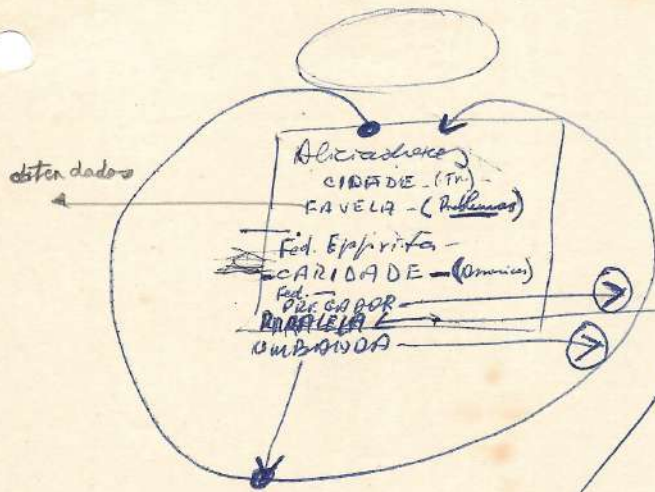 obter dados
Aliciadores
CIDADE - (Tr.) -
FAVELA - (Problemas)
Fed. Espírita -
CARIDADE -
Fed. -
PREGADOR
PARALELA
UMBANDA